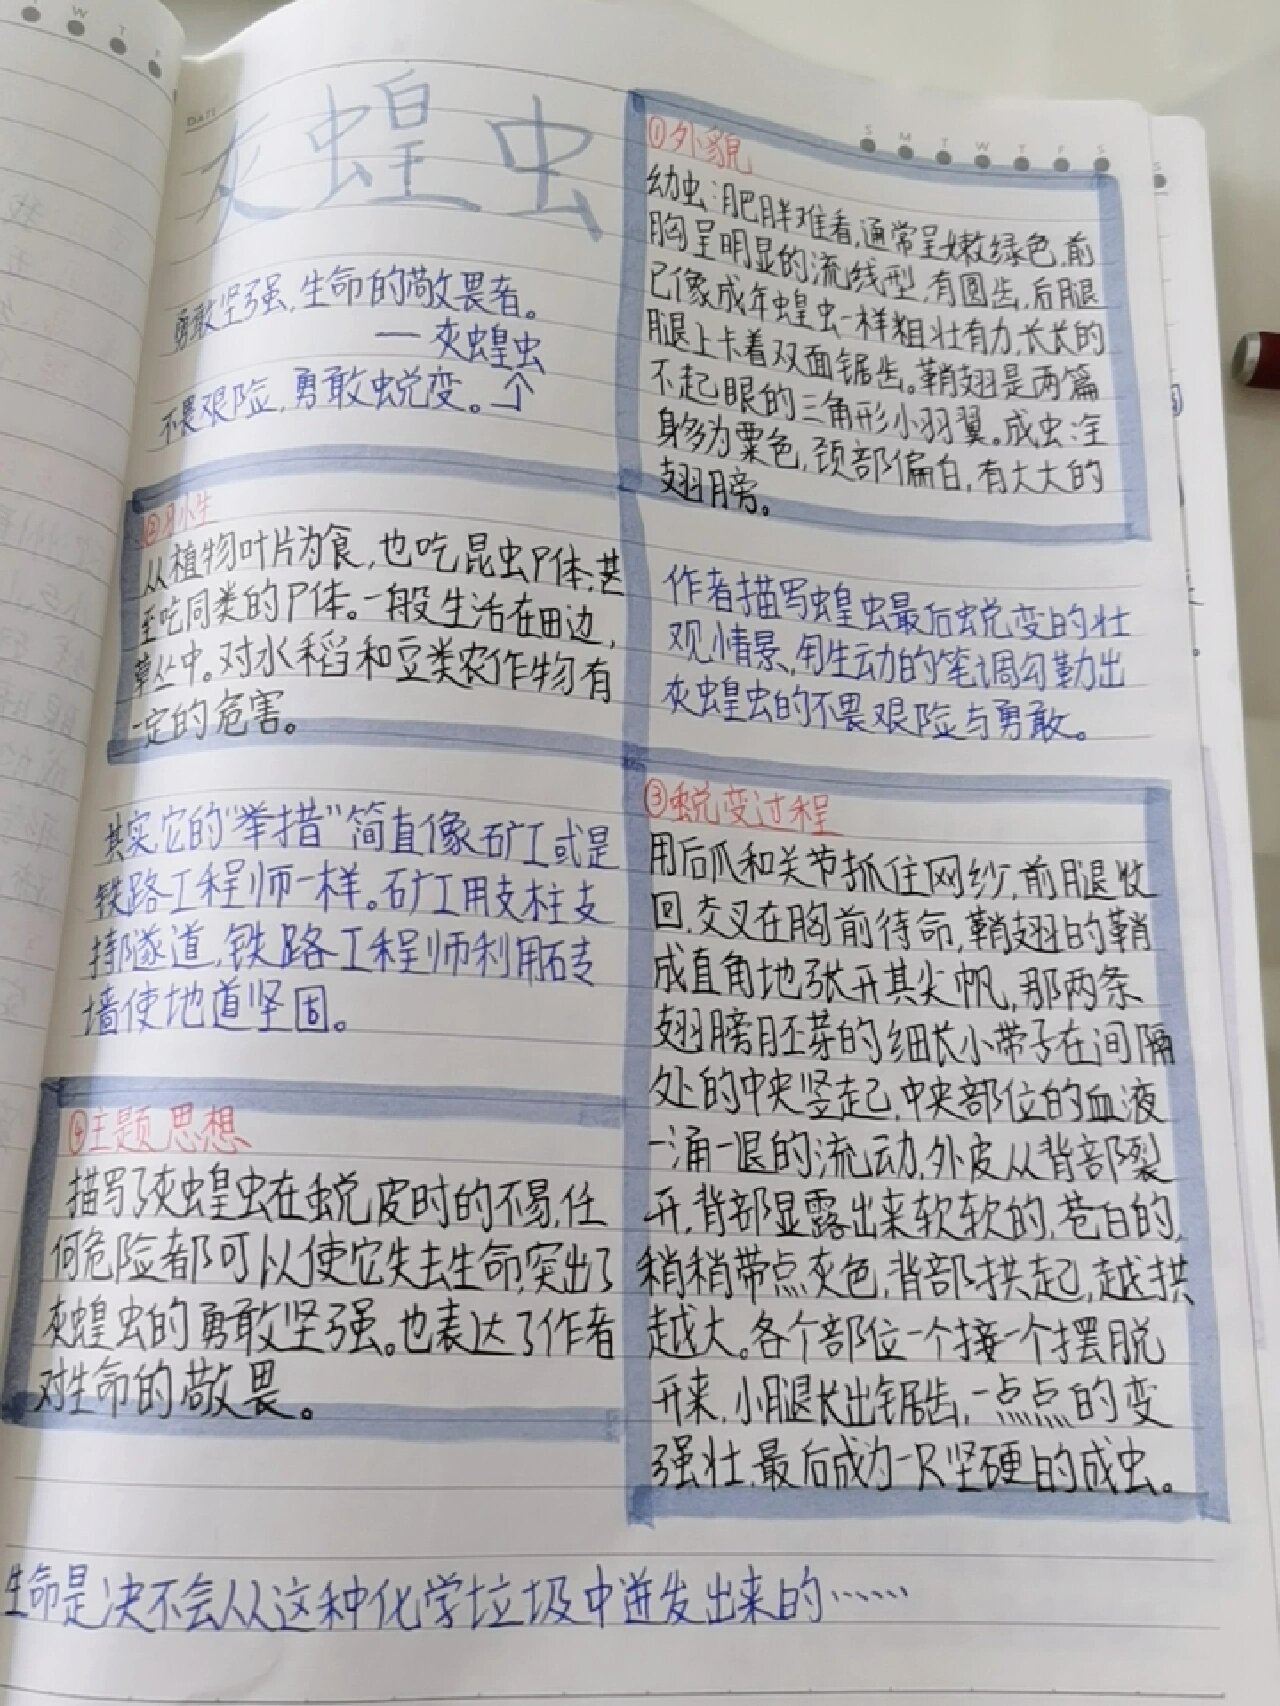 灰蝗虫
勇敢坚强,生命的敬畏者。
— 灰蝗虫
不畏艰险,勇敢蜕变。
①外貌
幼虫:肥胖难看,通常呈嫩绿色,前
胸呈明显的流线型,有圆齿,后腿
已像成年蝗虫一样粗壮有力,长长的
腿上卡着双面锯齿。鞘翅是两篇
不起眼的三角形小羽翼。成虫:全
身多为粟色,颈部偏白,有大大的
翅膀。
从植物叶片为食,也吃昆虫尸体,甚
至吃同类的尸体。一般生活在田边,
草丛中。对水稻和豆类农作物有
一定的危害。
作者描写蝗虫最后蜕变的壮
观情景,用生动的笔调勾勒出
灰蝗虫的不畏艰险与勇敢。
其实它的“举措”简直像矿工或是
铁路工程师一样。矿工用支柱支
持隧道,铁路工程师利用砖
墙使地道坚固。
③蜕变过程
用后爪和关节抓住网纱,前腿收
回,交叉在胸前待命,鞘翅的鞘
成直角地张开其尖帆,那两条
翅膀胚芽的细长小带子在间隔
处的中央竖起,中央部位的血液
一涌一退的流动,外皮从背部裂
开,背部显露出来软软的,苍白的,
稍稍带点灰色,背部拱起,越拱
越大。各个部位一个接一个摆脱
开来,小腿长出锯齿,一点点的变
强壮,最后成为一只坚硬的成虫。
④主题思想
描写了灰蝗虫在蜕皮时的不易,任
何危险都可以使它失去生命,突出了
灰蝗虫的勇敢坚强。也表达了作者
对生命的敬畏。
生命是决不会从这种化学垃圾中迸发出来的……